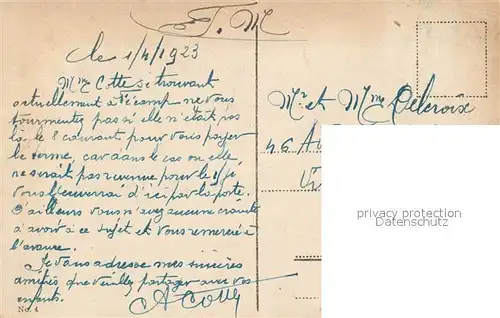 F. M
le 1/4/1923
Mme Cotte se trouvant
actuellement à Fécamp ne vous
tourmentez pas si elle n'était pas
là le 8 courant pour vous payer
le terme, car dans le cas ou elle
ne serait pas revenue pour le
vous l'enverrai d'ici par la poste.
D'ailleurs vous n'avez aucune crainte
à avoir à ce sujet et vous remercie à
l'avance.
Je vous adresse mes sincères
amitiés que veuillez partager avec vos
enfants.
A Cotte
No. 4
Mr et Mme Delcroix
46 Av
privacy protection
Datenschutz